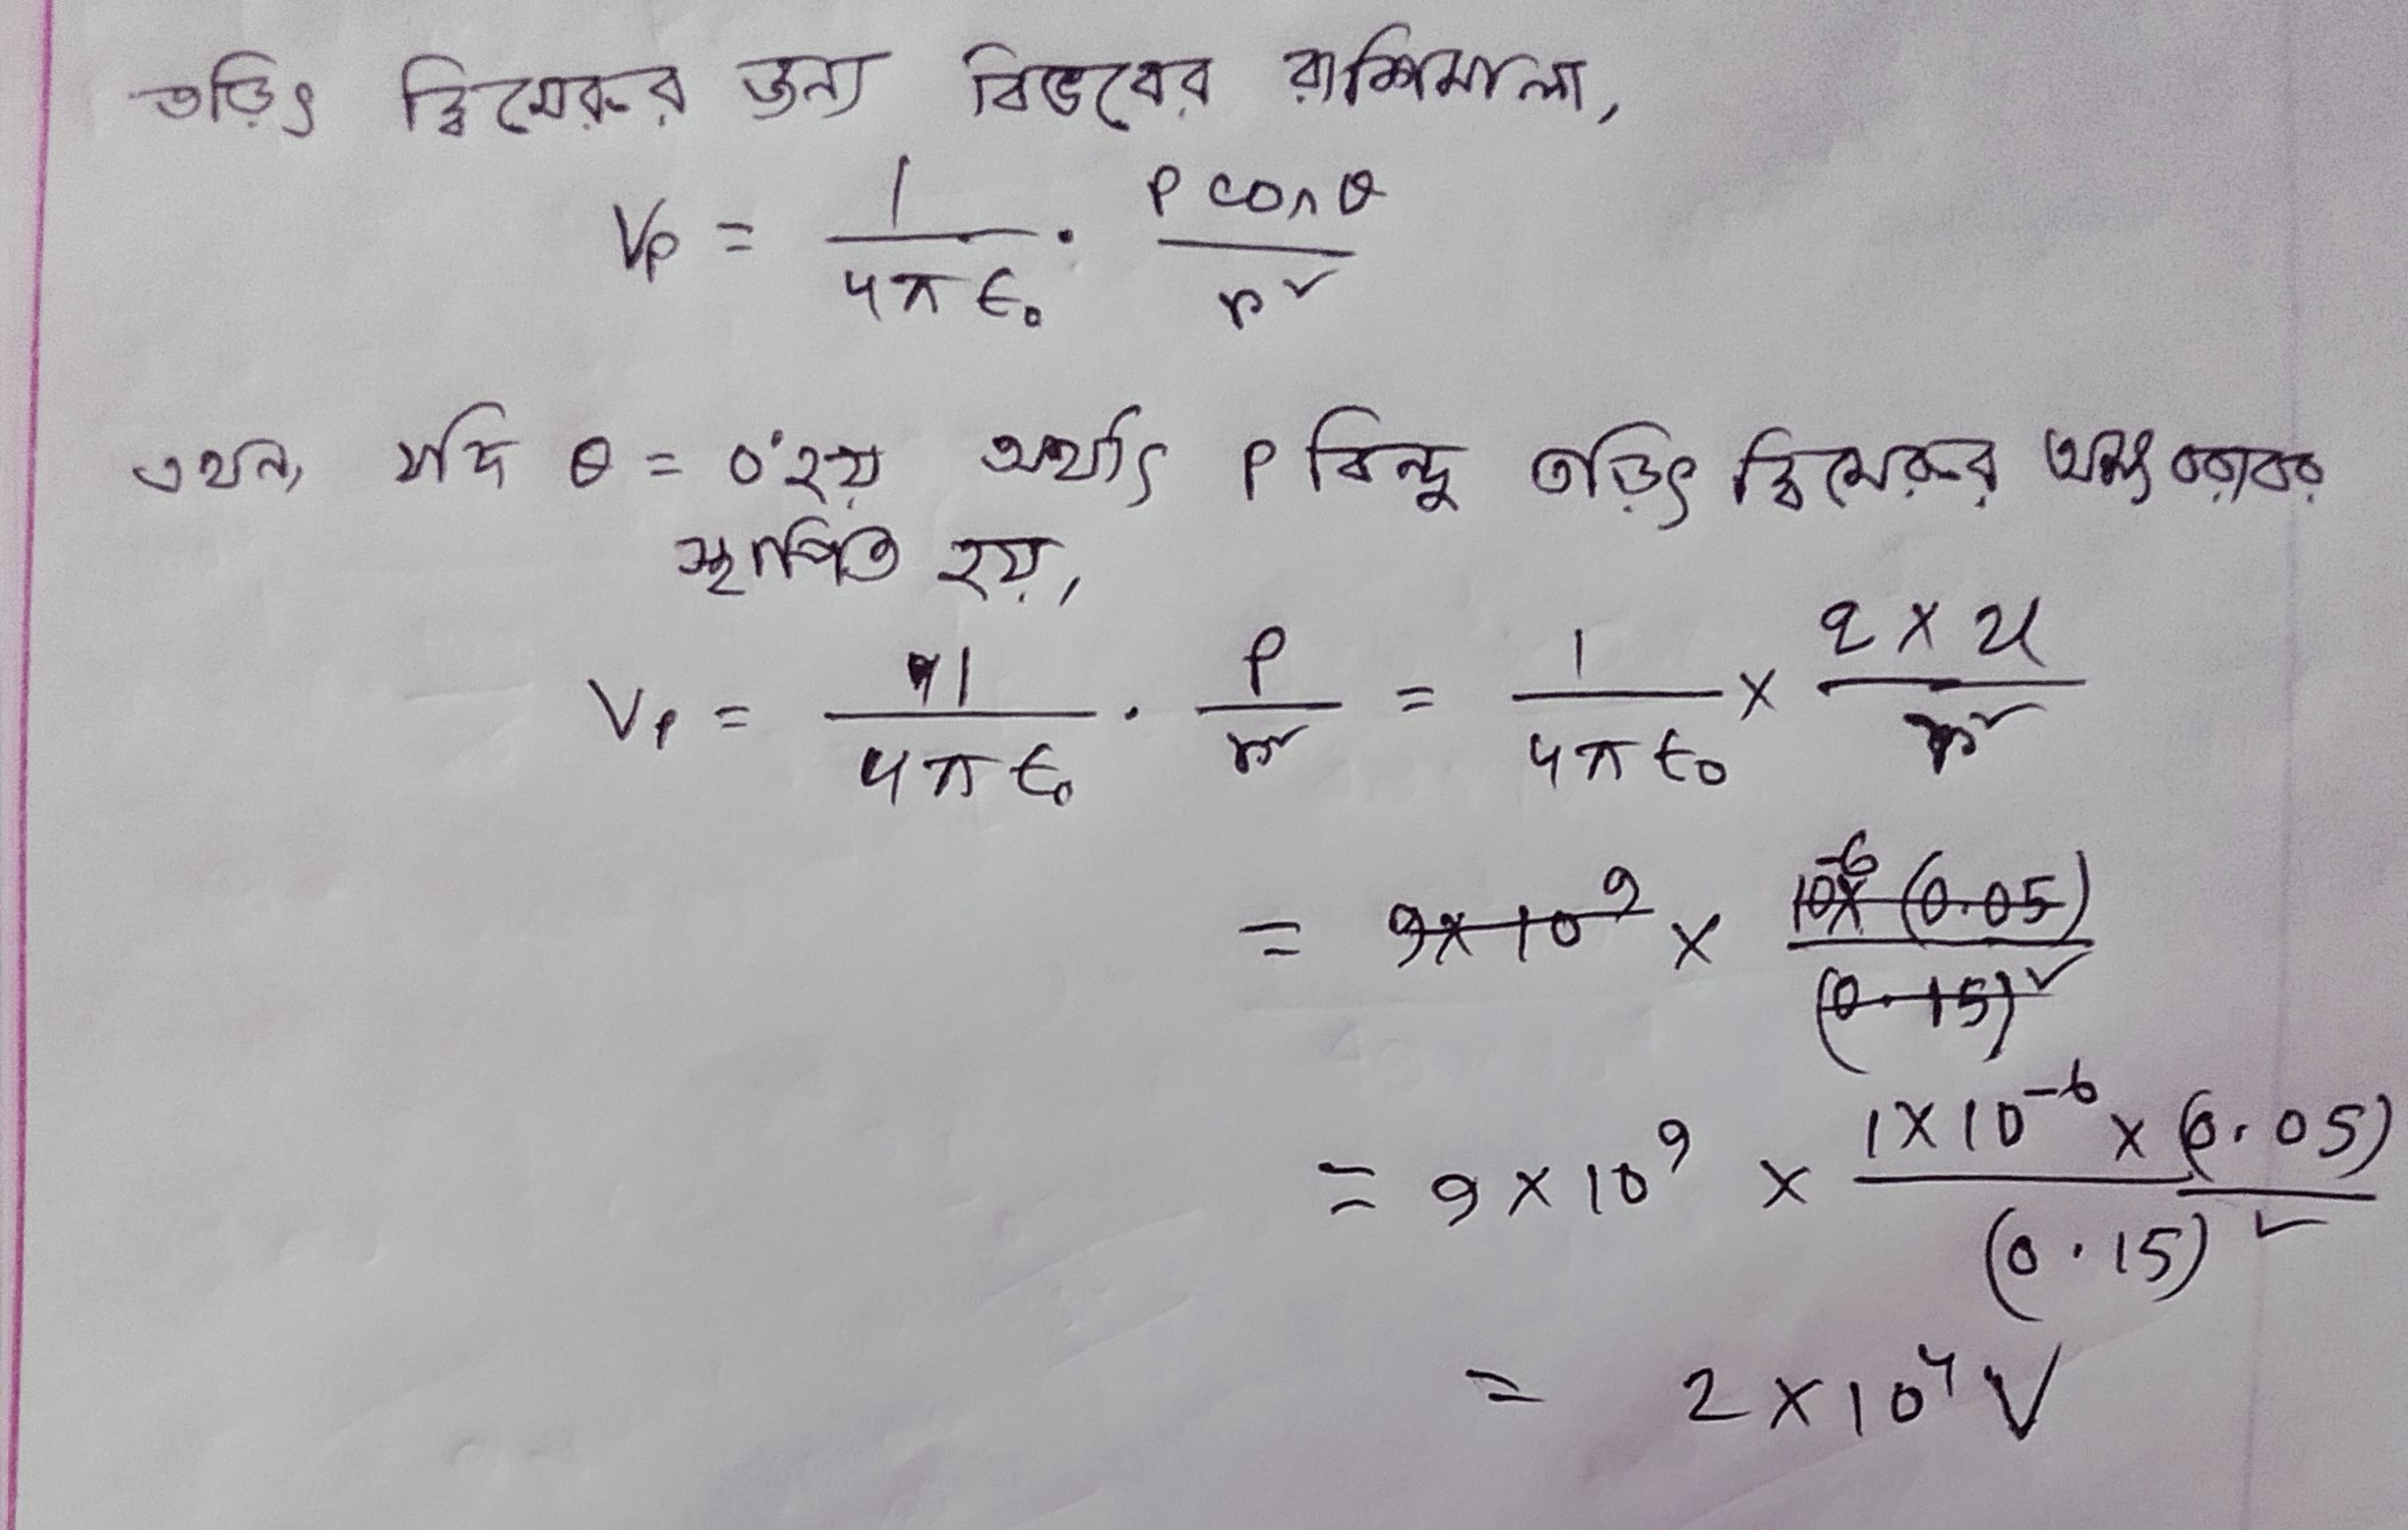 তড়িৎ দ্বিমেরুর জন্য বিভবের রাশিমালা,
Vp = 1/4πϵ₀ · P cosθ/r²
এখন, যদি θ = 0° হয় অর্থাৎ P বিন্দু তড়িৎ দ্বিমেরুর অক্ষ বরাবর
স্থাপিত হয়,
Vp = 1/4πϵ₀ · P/r² = 1/4πϵ₀ × q × 2l/r²
= 9×10⁹ × 10⁻⁶× (0.05)/(0.15)²
= 9×10⁹ × 1×10⁻⁶ × (0.05)/(0.15)²
= 2×10⁴ V